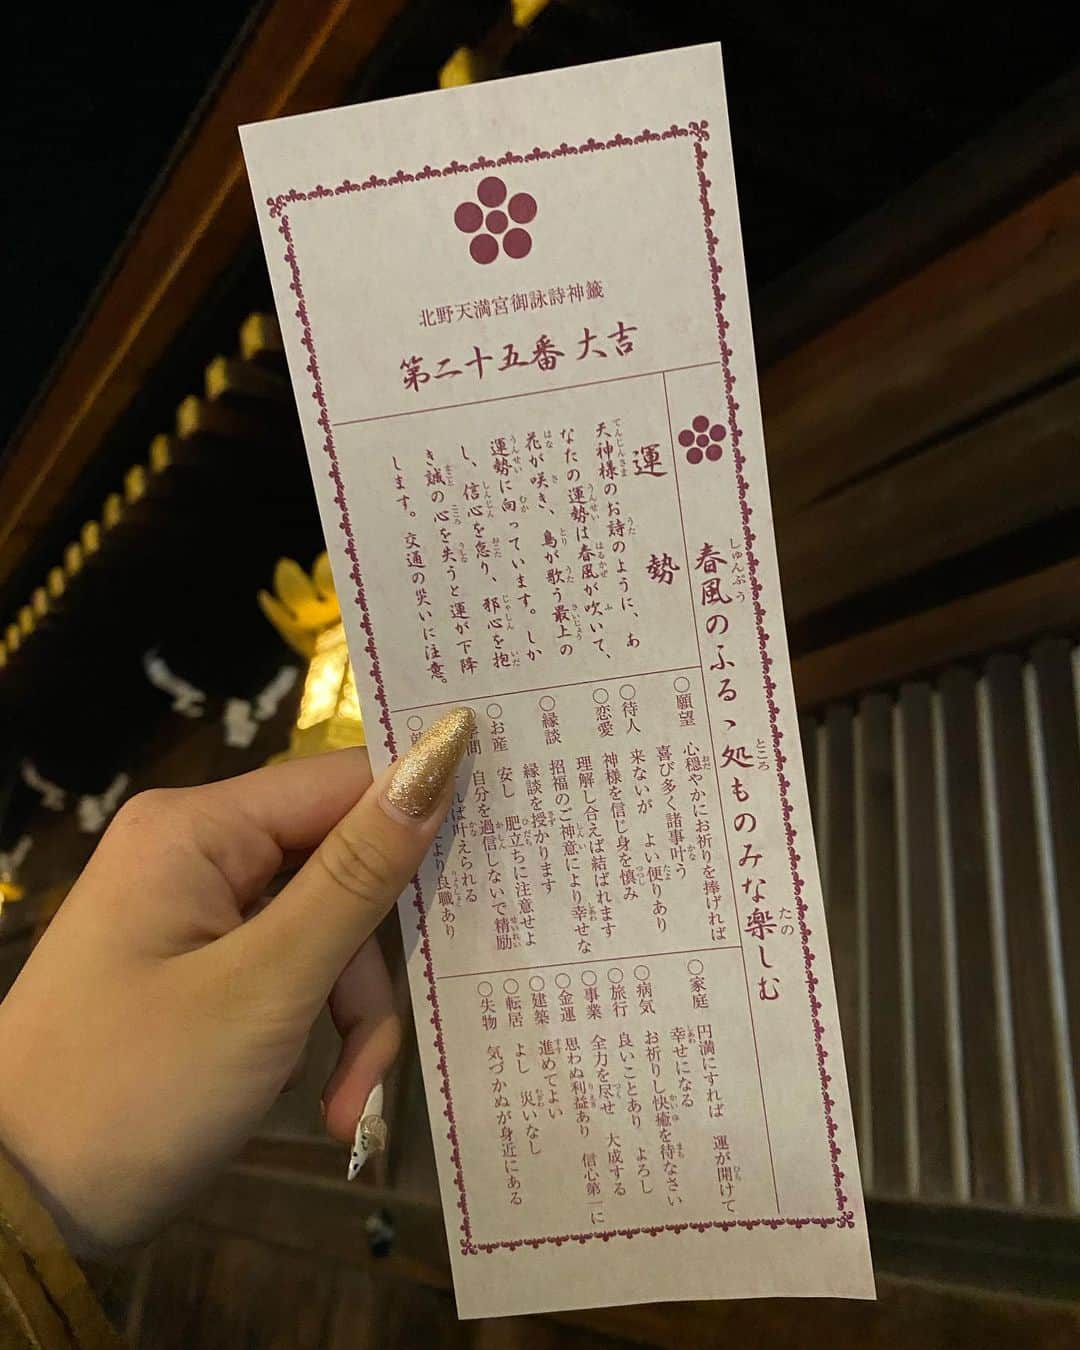 北野天満宮御詠詩神籤
第二十五番 大吉
春風のふるゝ処ものみな楽しむ
運勢
天神様のお詩のように、あ
なたの運勢は春風が吹いて、
花が咲き、鳥が歌う最上の
運勢に向っています。しか
し、信心を怠り、邪心を抱
き誠の心を失うと運が下降
します。交通の災いに注意。
○願望 心穏やかにお祈りを捧げれば
喜び多く諸事叶う
○待人 来ないが よい便りあり
○恋愛 神様を信じ身を慎み
理解し合えば結ばれます
○縁談 招福のご神意により幸せな
縁談を授かります
○お産 安し 肥立ちに注意せよ
自分を過信しないで精励
れば叶えられる
より良職あり
○家庭 円満にすれば 運が開けて
幸せになる
○病気 お祈りし快癒を待なさい
○旅行 良いことあり よろし
○事業 全力を尽せ 大成する
○金運 思わぬ利益あり 信心第一に
○建築 進めてよい
○転居 よし 災いなし
○失物 気づかぬが身近にある